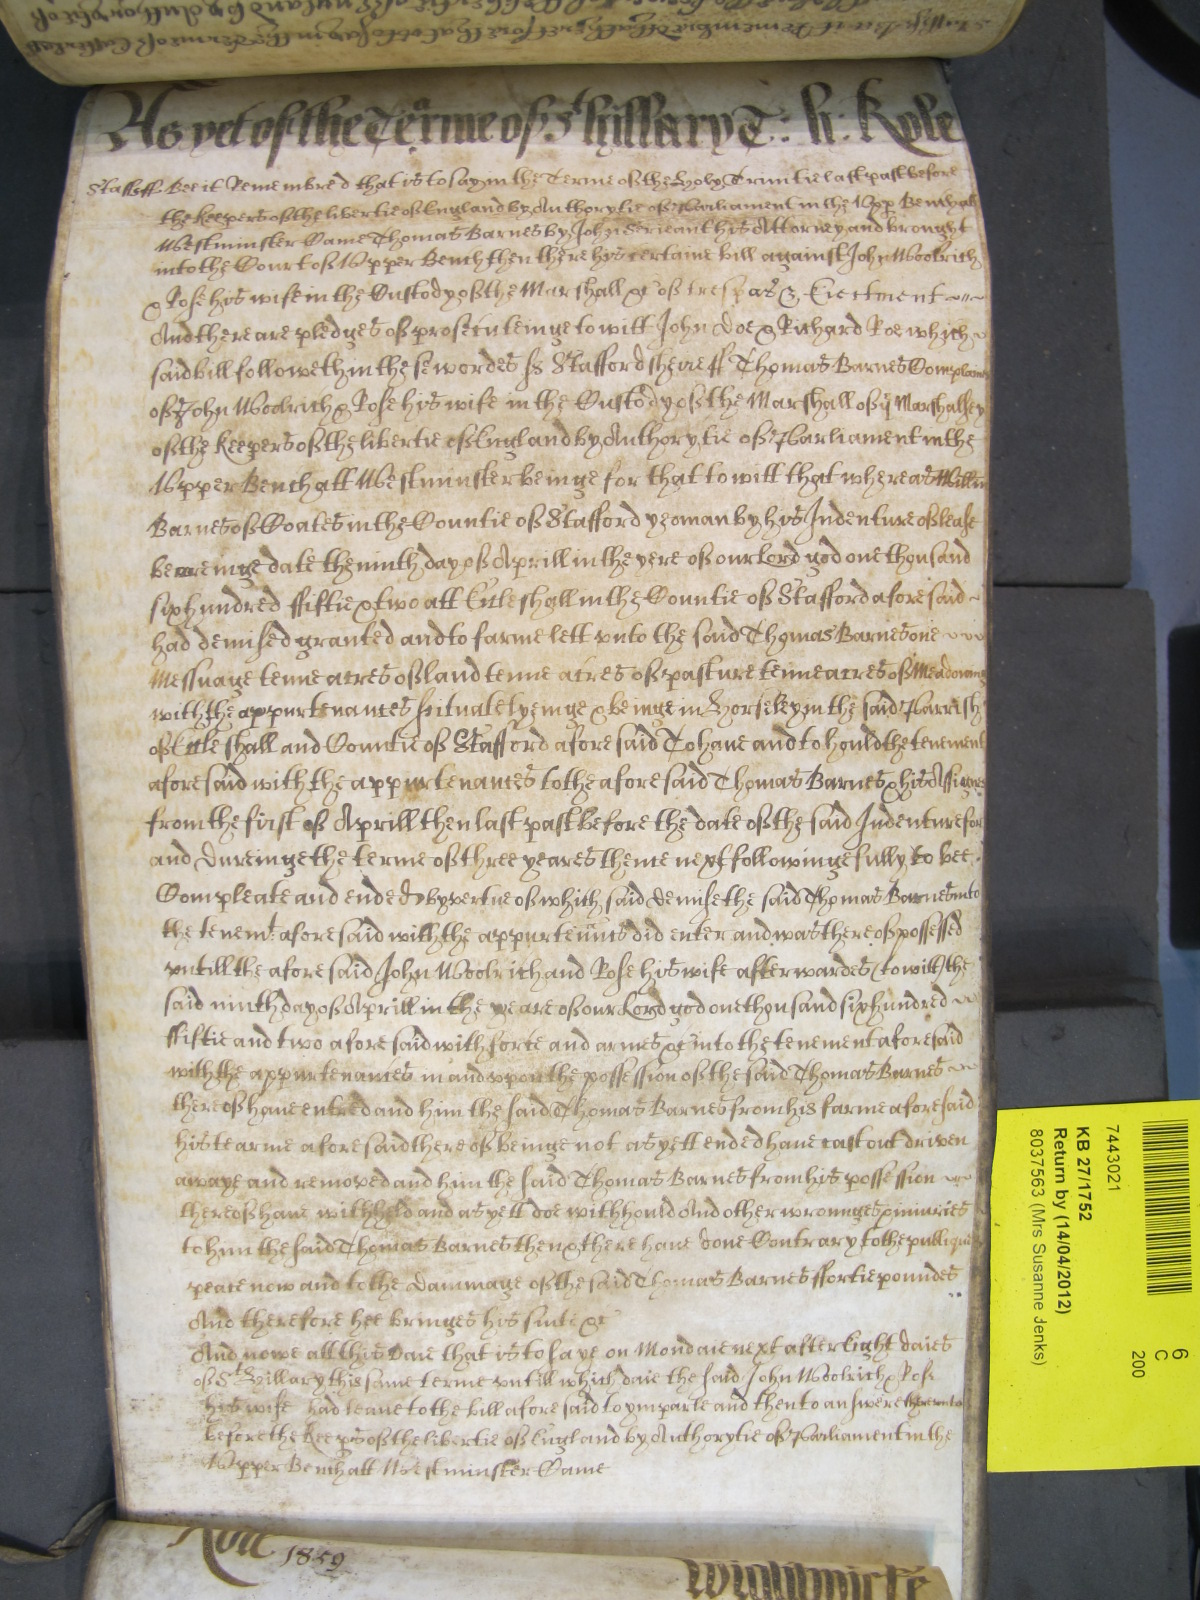 As yet of the Terme of St hillary T: h: Role
Staff ff Bee it Remembred that is to say in the Terme of the Holy Trinitie last past before
the keepers of the libertie of England by Authorytie of Parliament in the Upper Bench att
Westminster Came Thomas Barnes by John Serieant his Attorney and brought
into the Court of Upper Bench then there his certaine bill against John Woolrich
& Rose his wife in the Custody of the Marshall &c of trespas & Eiectment
And there are pledges of prosecuteinge to witt John Doe & Richard Roe which
said bill followeth in these wordes ss Stafford sherieff Thomas Barnes Complaines
of John Woolrich & Rose his wife in the Custody of the Marshall of ye Marshalsey
of the keepers of the libertie of England by Authorytie of Parliament in the
Upper Bench att Westminster beinge for that to witt that whereas Willm
Barnes of Coates in the Countie of Stafford yeoman by his Indenture of lease
beareinge date the ninth day of Aprill in the yere of our Lord god one thousand
six hundred fiftie & two att Eccleshall in the Countie of Stafford aforesaid
had demised granted and to farme lett unto the said Thomas Barnes one
Messuage tenne acres of land tenne acres of pasture tenne acres of Meadow
with the appurtenances scituate lyeinge & beinge in Horseley in the said Parrish
of Eccleshall and Countie of Stafford aforesaid To have and to hould the tenement
aforesaid with the appurtenances to the aforesaid Thomas Barnes & his Assignes
from the first of Aprill then last past before the date of the said Indenture for
and dureinge the terme of three yeares thence next followinge fully to bee
Compleate and ended by vertue of which said demise the said Thomas Barnes into
the tenemt aforesaid with the appurtenncs did enter and was thereof possessed
untill the aforesaid John Woolrich and Rose his wife afterwardes (to witt) the
said ninth day of Aprill in the yeare of our Lord god one thousand six hundred
ffiftie and two aforesaid with force and armes &c into the tenement aforesaid
with the appurtenances in and uppon the possession of the said Thomas Barnes
thereof have entred and him the said Thomas Barnes from his farme aforesaid
his tearme aforesaid thereof beinge not as yett ended have cast out driven
awaye and removed and him the said Thomas Barnes from his possession
thereof have withheld and as yett doe withhould And other wronnges & iniuries
to him the said Thomas Barnes then & there have done Contrary to the publique
peace now and to the dammage of the said Thomas Barnes ffortie poundes
And therefore hee bringes his suite &c
And nowe att this Daie that is to saye on Mondaie next after Eight daies
of St Hillary this same terme untill which daie the said John Woolrich & Rose
his wife had leave to the bill aforesaid to ymparle and then to answere thereunto
before the Keeps of the libertie of England by Authorytie of Parliament in the
Upper Bench att Westminster Came
Roll 1859
Wightwicke
7443021
KB 27/1752
Return by (14/04/2012)
8037563 (Mrs Susanne Jenks)
6
C
200